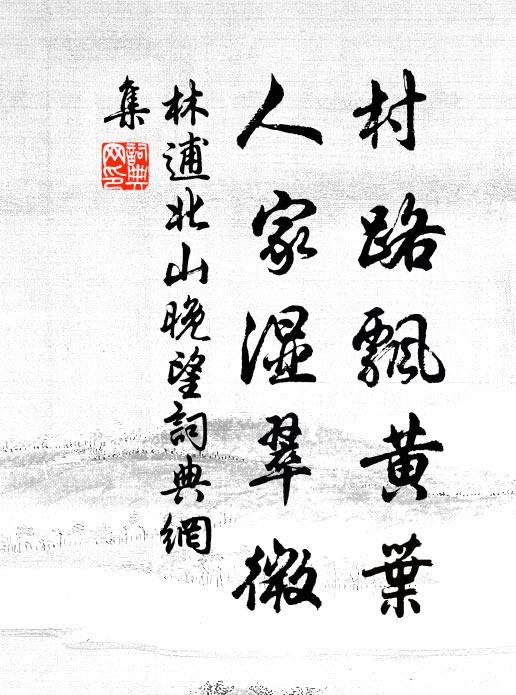 村路飄黃葉
人家湿翠微
林逋北山晚望詞典網
集
詞典網印